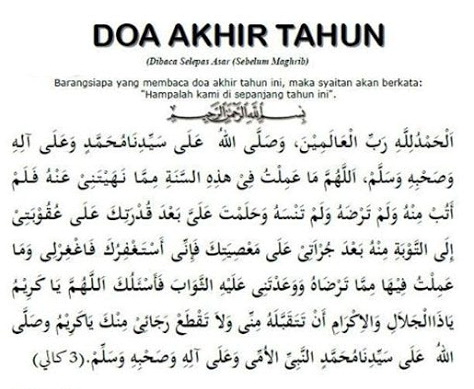 DOA AKHIR TAHUN
(Dibaca Selepas Asar (Sebelum Maghrib)
Barangsiapa yang membaca doa akhir tahun ini, maka syaitan akan berkata:
"Hampalah kami di sepanjang tahun ini".
بِسْمِ اللَّهِ الرَّحْمٰنِ الرَّحِيْمِ
اَلْحَمْدُلِلَّهِ رَبِّ الْعَالَمِيْنَ، وَصَلَّى اللهُ عَلَى سَيِّدِنَامُحَمَّدٍ وَعَلَى آلِهِ
وَصَحْبِهِ وَسَلَّمَ، اَللَّهُمَّ مَا عَمِلْتُ فِيْ هٰذِهِ السَّنَةِ مِمَّا نَهَيْتَنِيْ عَنْهُ فَلَمْ
أَتُبْ مِنْهُ وَلَمْ تَرْضَهُ وَلَمْ تَنْسَهُ وَحَلَمْتَ عَلَىَّ بَعْدَ قُدْرَتِكَ عَلَى عُقُوْبَتِيْ
إِلَى التَّوْبَةِ مِنْهُ بَعْدَ جُرْاَتِيْ عَلَى مَعْصِيَتِكَ فَاِنِّى أَسْتَغْفِرُكَ فَاغْفِرْلِى وَمَا
عَمِلْتُ فِيْهَا مِمَّا تَرْضَاهُ وَوَعَدْتَنِى عَلَيْهِ الثَّوَابَ فَأَسْئَلُكَ اَللَّهُمَّ يَا كَرِيْمُ
يَاذَاالْجَلَالِ وَالْاِكْرَامِ أَنْ تَتَقَبَّلَهُ مِنِّى وَلَا تَقْطَعْ رَجَائِيْ مِنْكَ يَاكَرِيْمُ وصَلَّى
اللهُ عَلَى سَيِّدِنَامُحَمَّدٍ النَّبِيِّ الْأُمِّى وَعَلَى آلِهِ وَصَحْبِهِ وَسَلَّمَ.(3 كالي)